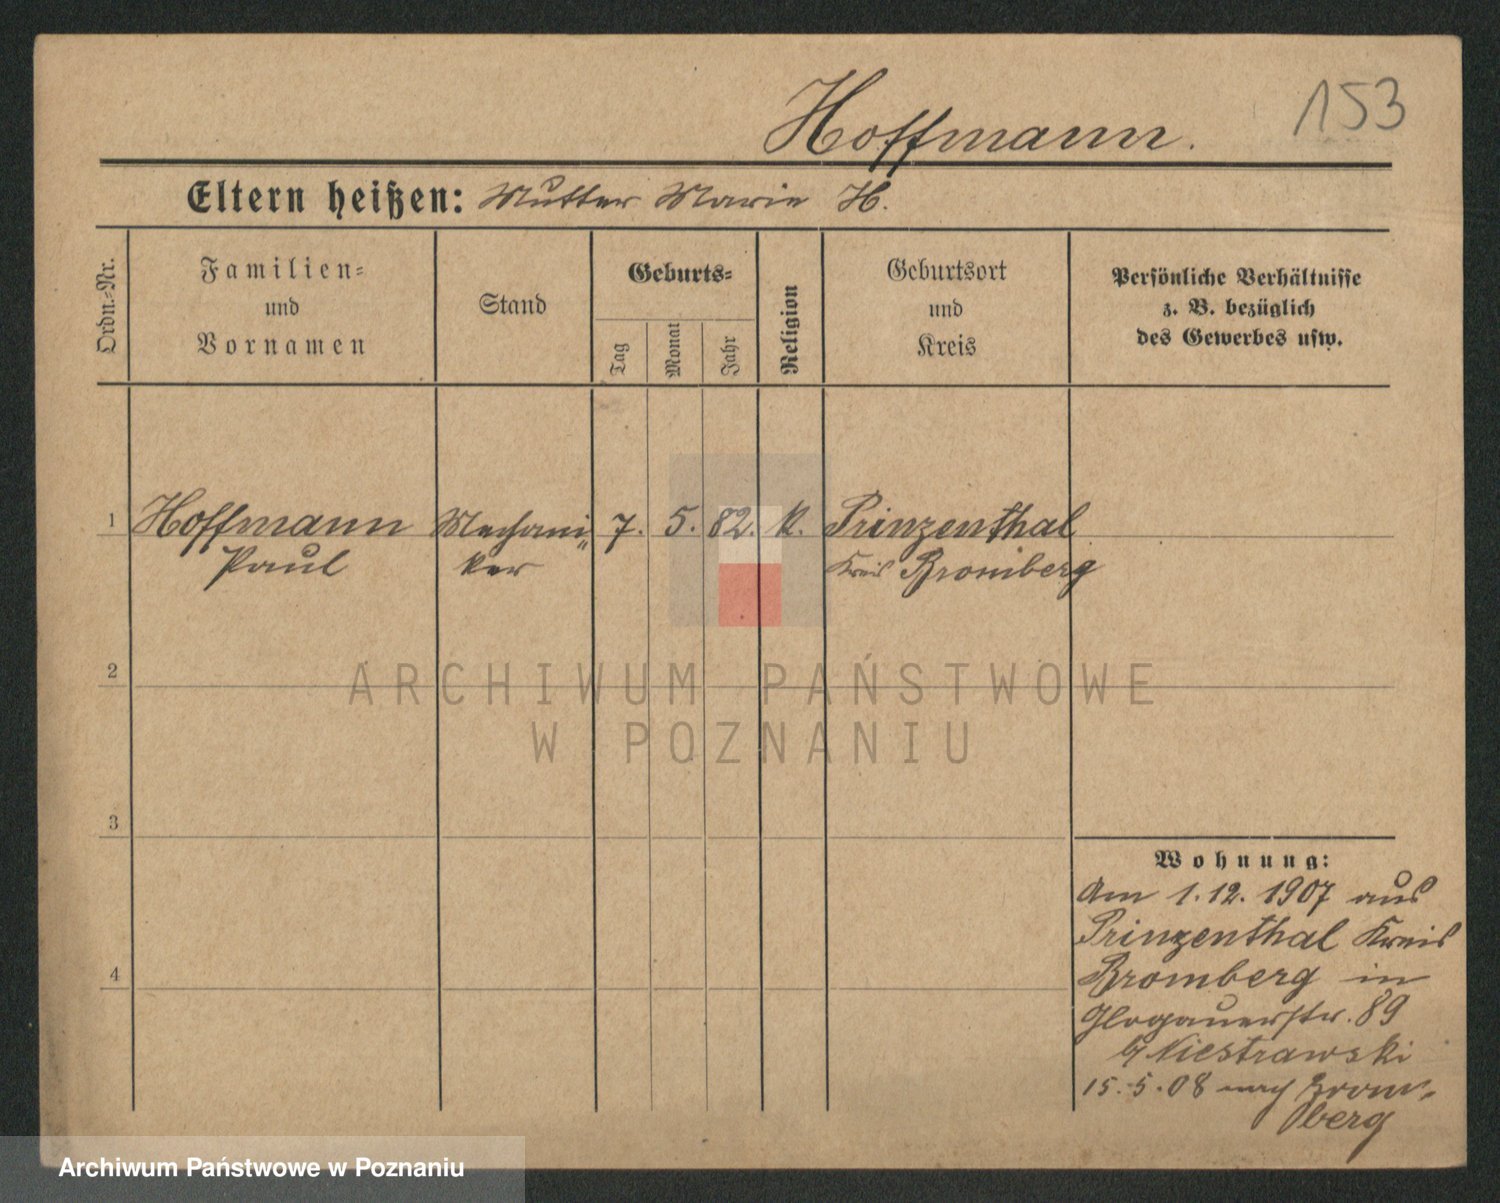 153
Hoffmann.
Eltern heißen: Mutter Marie H.
Ordn.-Nr.
Familien-
und
Vornamen
Stand
Geburts-
Tag
Monat
Jahr
Religion
Geburtsort
und
Kreis
Persönliche Verhältnisse
z. B. bezüglich
des Gewerbes usw.
1 Hoffmann Mechani- 7. 5. 82. k. Prinzenthal
Paul ker Kreis Bromberg
2
ARCHIWUM PAŃSTWOWE
W POZNANIU
3
Wohnung:
Am 1.12.1907 aus
Prinzenthal Kreis
4
Bromberg in
Glogauerstr. 89
b/ Niestrawski
15.5.08 nach Brom-
berg
Archiwum Państwowe w Poznaniu